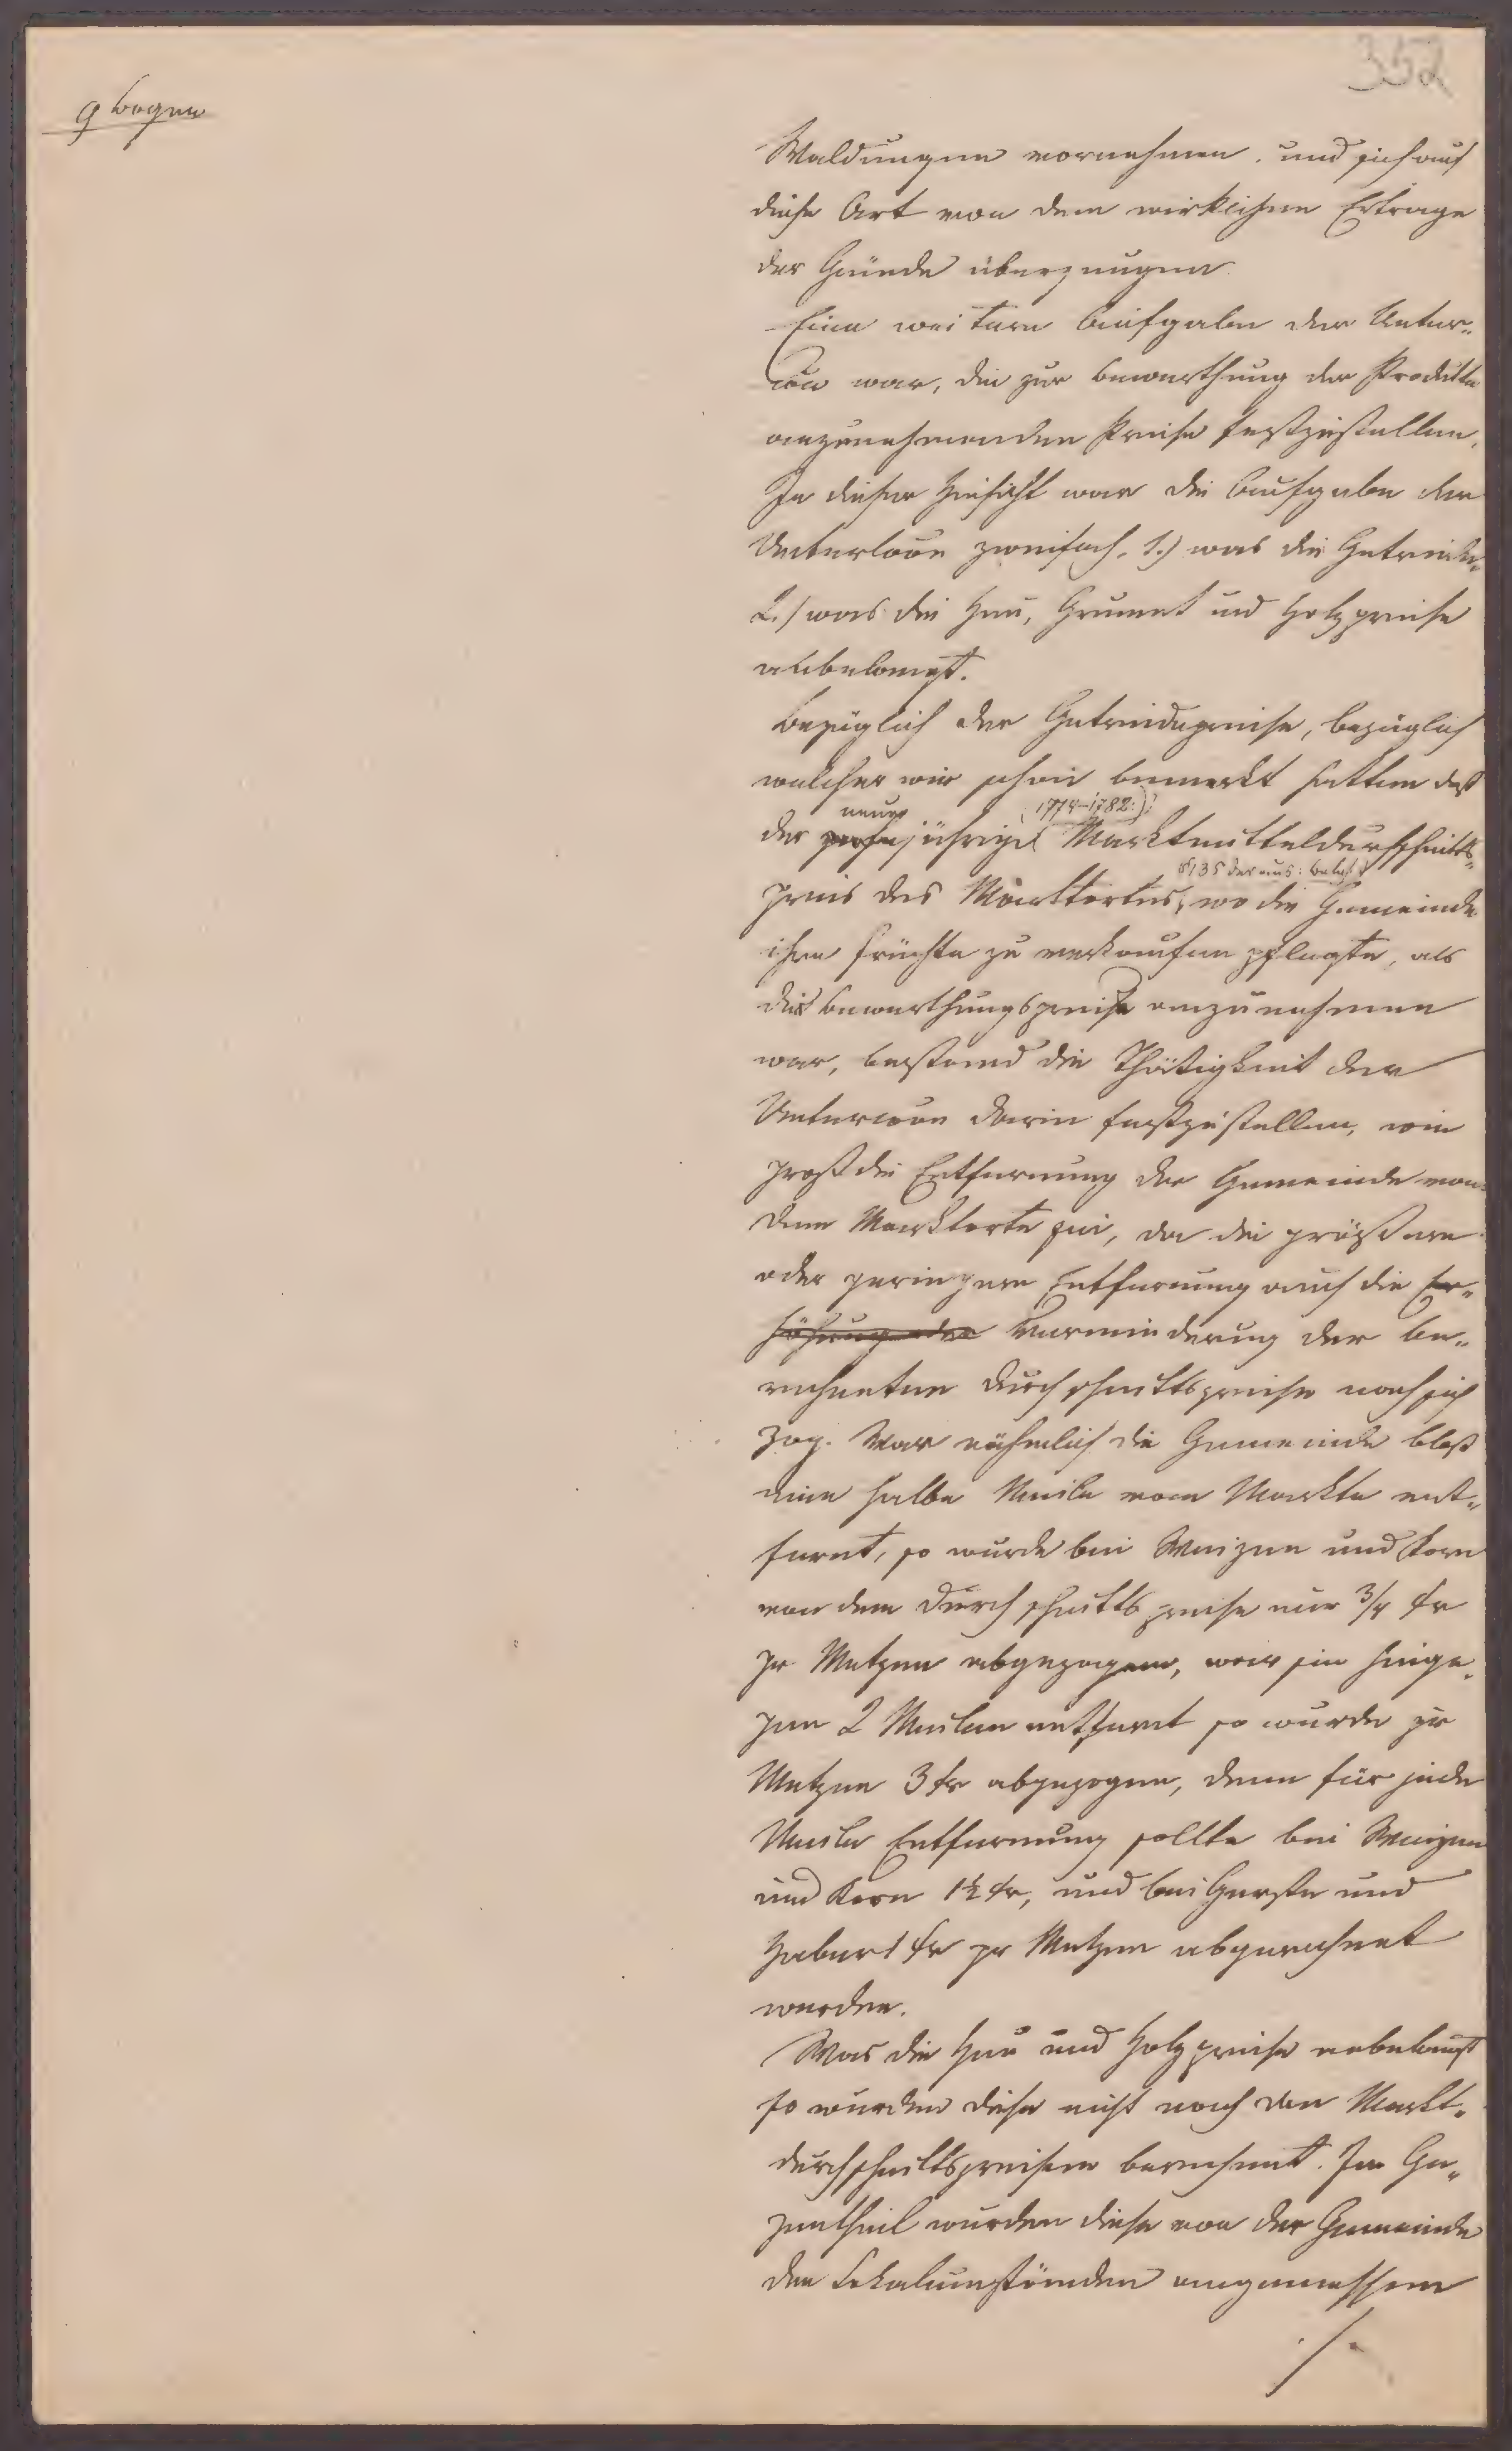 352
9 Bogen
Waldungen vornehmen, und sich auf
diese Art von dem wirklichen Ertrage
der Gründe überzeugen.
Eine weitere Aufgabe der Unter„
war, die zur Bewerthung der Produkte
anzunehmenden Preise festzustellen.
In dieser Hinsicht war die Aufgabe der
zweifach, 1.) was die Getreide„
2.) was die Heu, Grumet und Holzpreise
anbelangt.
Bezüglich der Getreidepreise, bezüglich
welcher wir schon bemerkt hatten daß
neun (1774–1782)
der jährige Marktmitteldurchschnitts„
§135 der
preis des Marktortes, wo die Gemeinde
ihre Früchte zu verkaufen pflegte, als
Bewerthungspreis anzunehmen
war, bestand die Thätigkeit der
darin festzustellen, wie
groß die Entfernung der Gemeinde von
dem Marktorte sei, da die größere
oder geringere Entfernung auch die Er„
höhung oder Verminderung der be„
rechneten Durchschnittspreise nach sich
zog. War nähmlich die Gemeinde bloß
eine halbe Meile vom Markte ent„
fernt, so wurde bei Weizen und Korn
von dem Durchschnittspreise nur 3/4 kr
pr Metzen abgezogen, war sie hinge„
gen 2 Meilen entfernt so wurde pr
Metzen 3 kr abgezogen, denn für jede
Meile Entfernung sollte bei Weizen
und Korn 1½ kr, und bei Gerste und
Haber 1 kr pr Metzen abgerechnet
werden.
Was die Heu und Holzpreise anbelangt
so wurden diese nicht nach den Markt„
durchschnittspreisen berechnet. Im Ge„
gentheil wurden diese von der Gemeinde
den Lokalumständen angemessen
./.